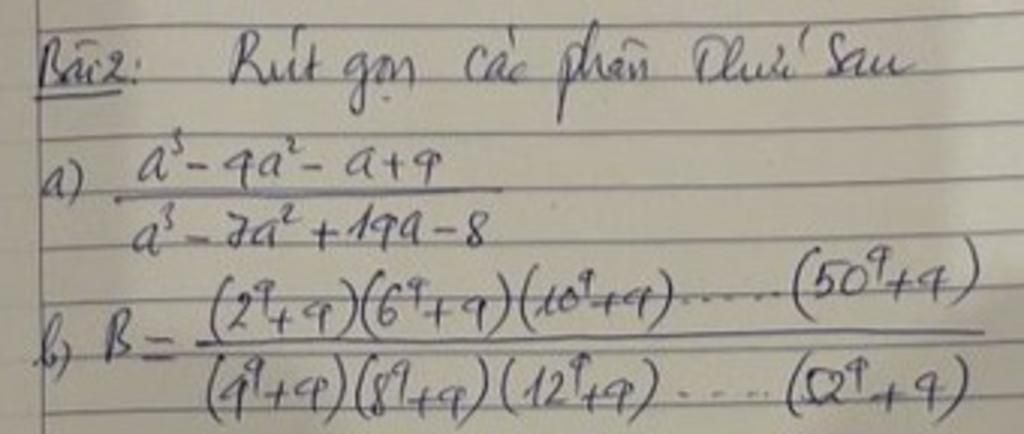 Bài 2: Rút gọn các phân thức sau
a) \frac{a³ - 4a² - a + 4}{a³ - 7a² + 14a - 8}
b) B = \frac{(2⁴ + 4)(6⁴ + 4)(10⁴ + 4) ...... (50⁴ + 4)}{(4⁴ + 4)(8⁴ + 4)(12⁴ + 4) ..... (52⁴ + 4)}